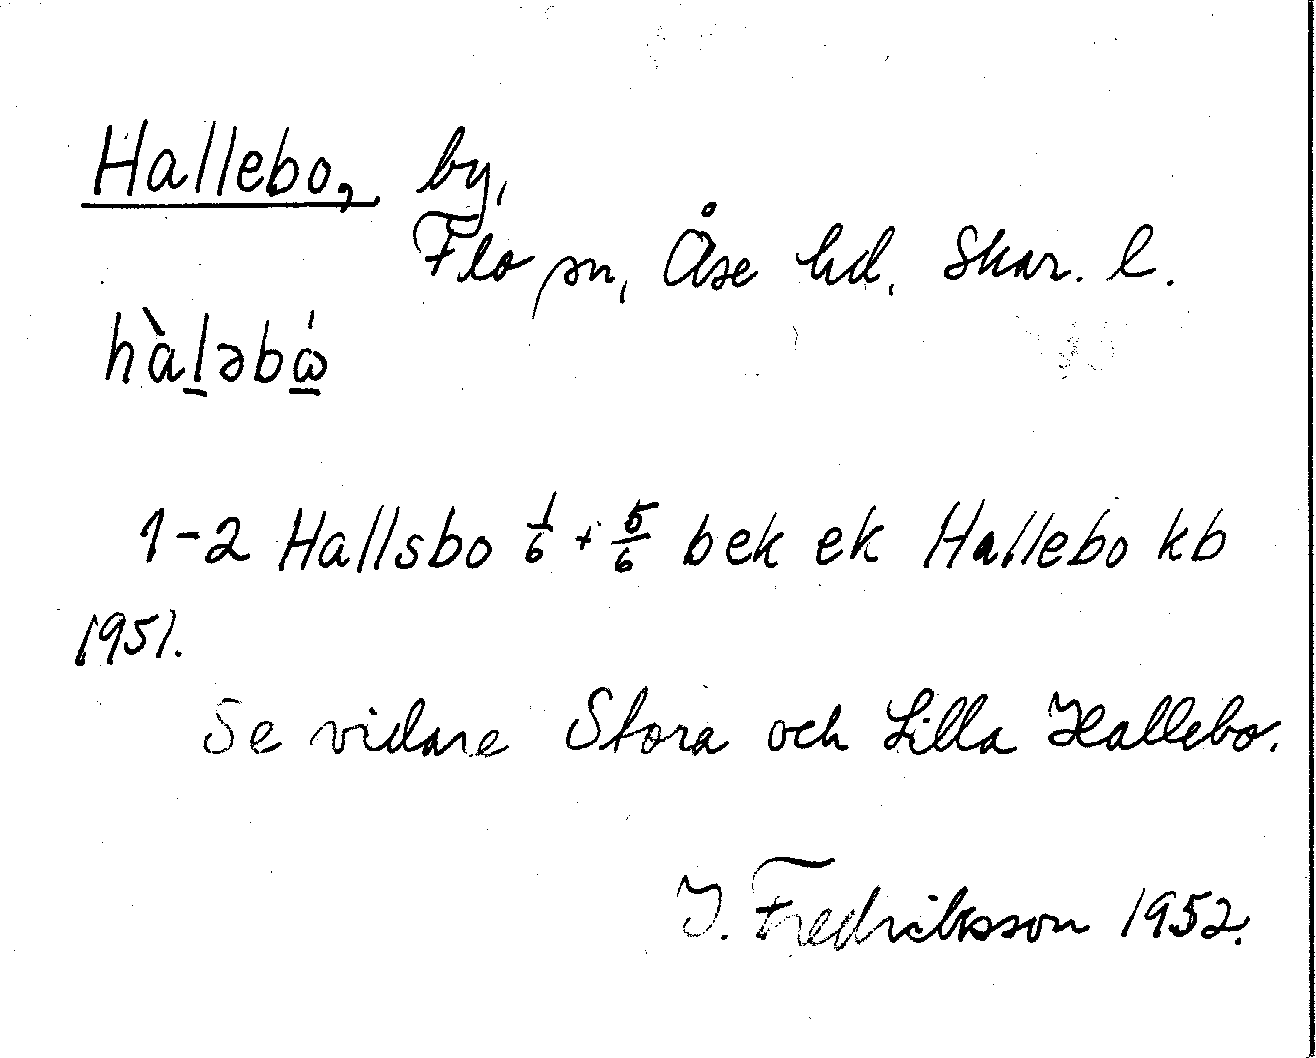 Hallebo, by,
Flo sn, Åse hd, Skar. l.
hàl̠əbώ̠
1-2 Hallsbo 1/6 + 5/6 bek ek Hallebo kb
1951.
Se vidare Stora och Lilla Hallebo.
I. Fredriksson 1952.